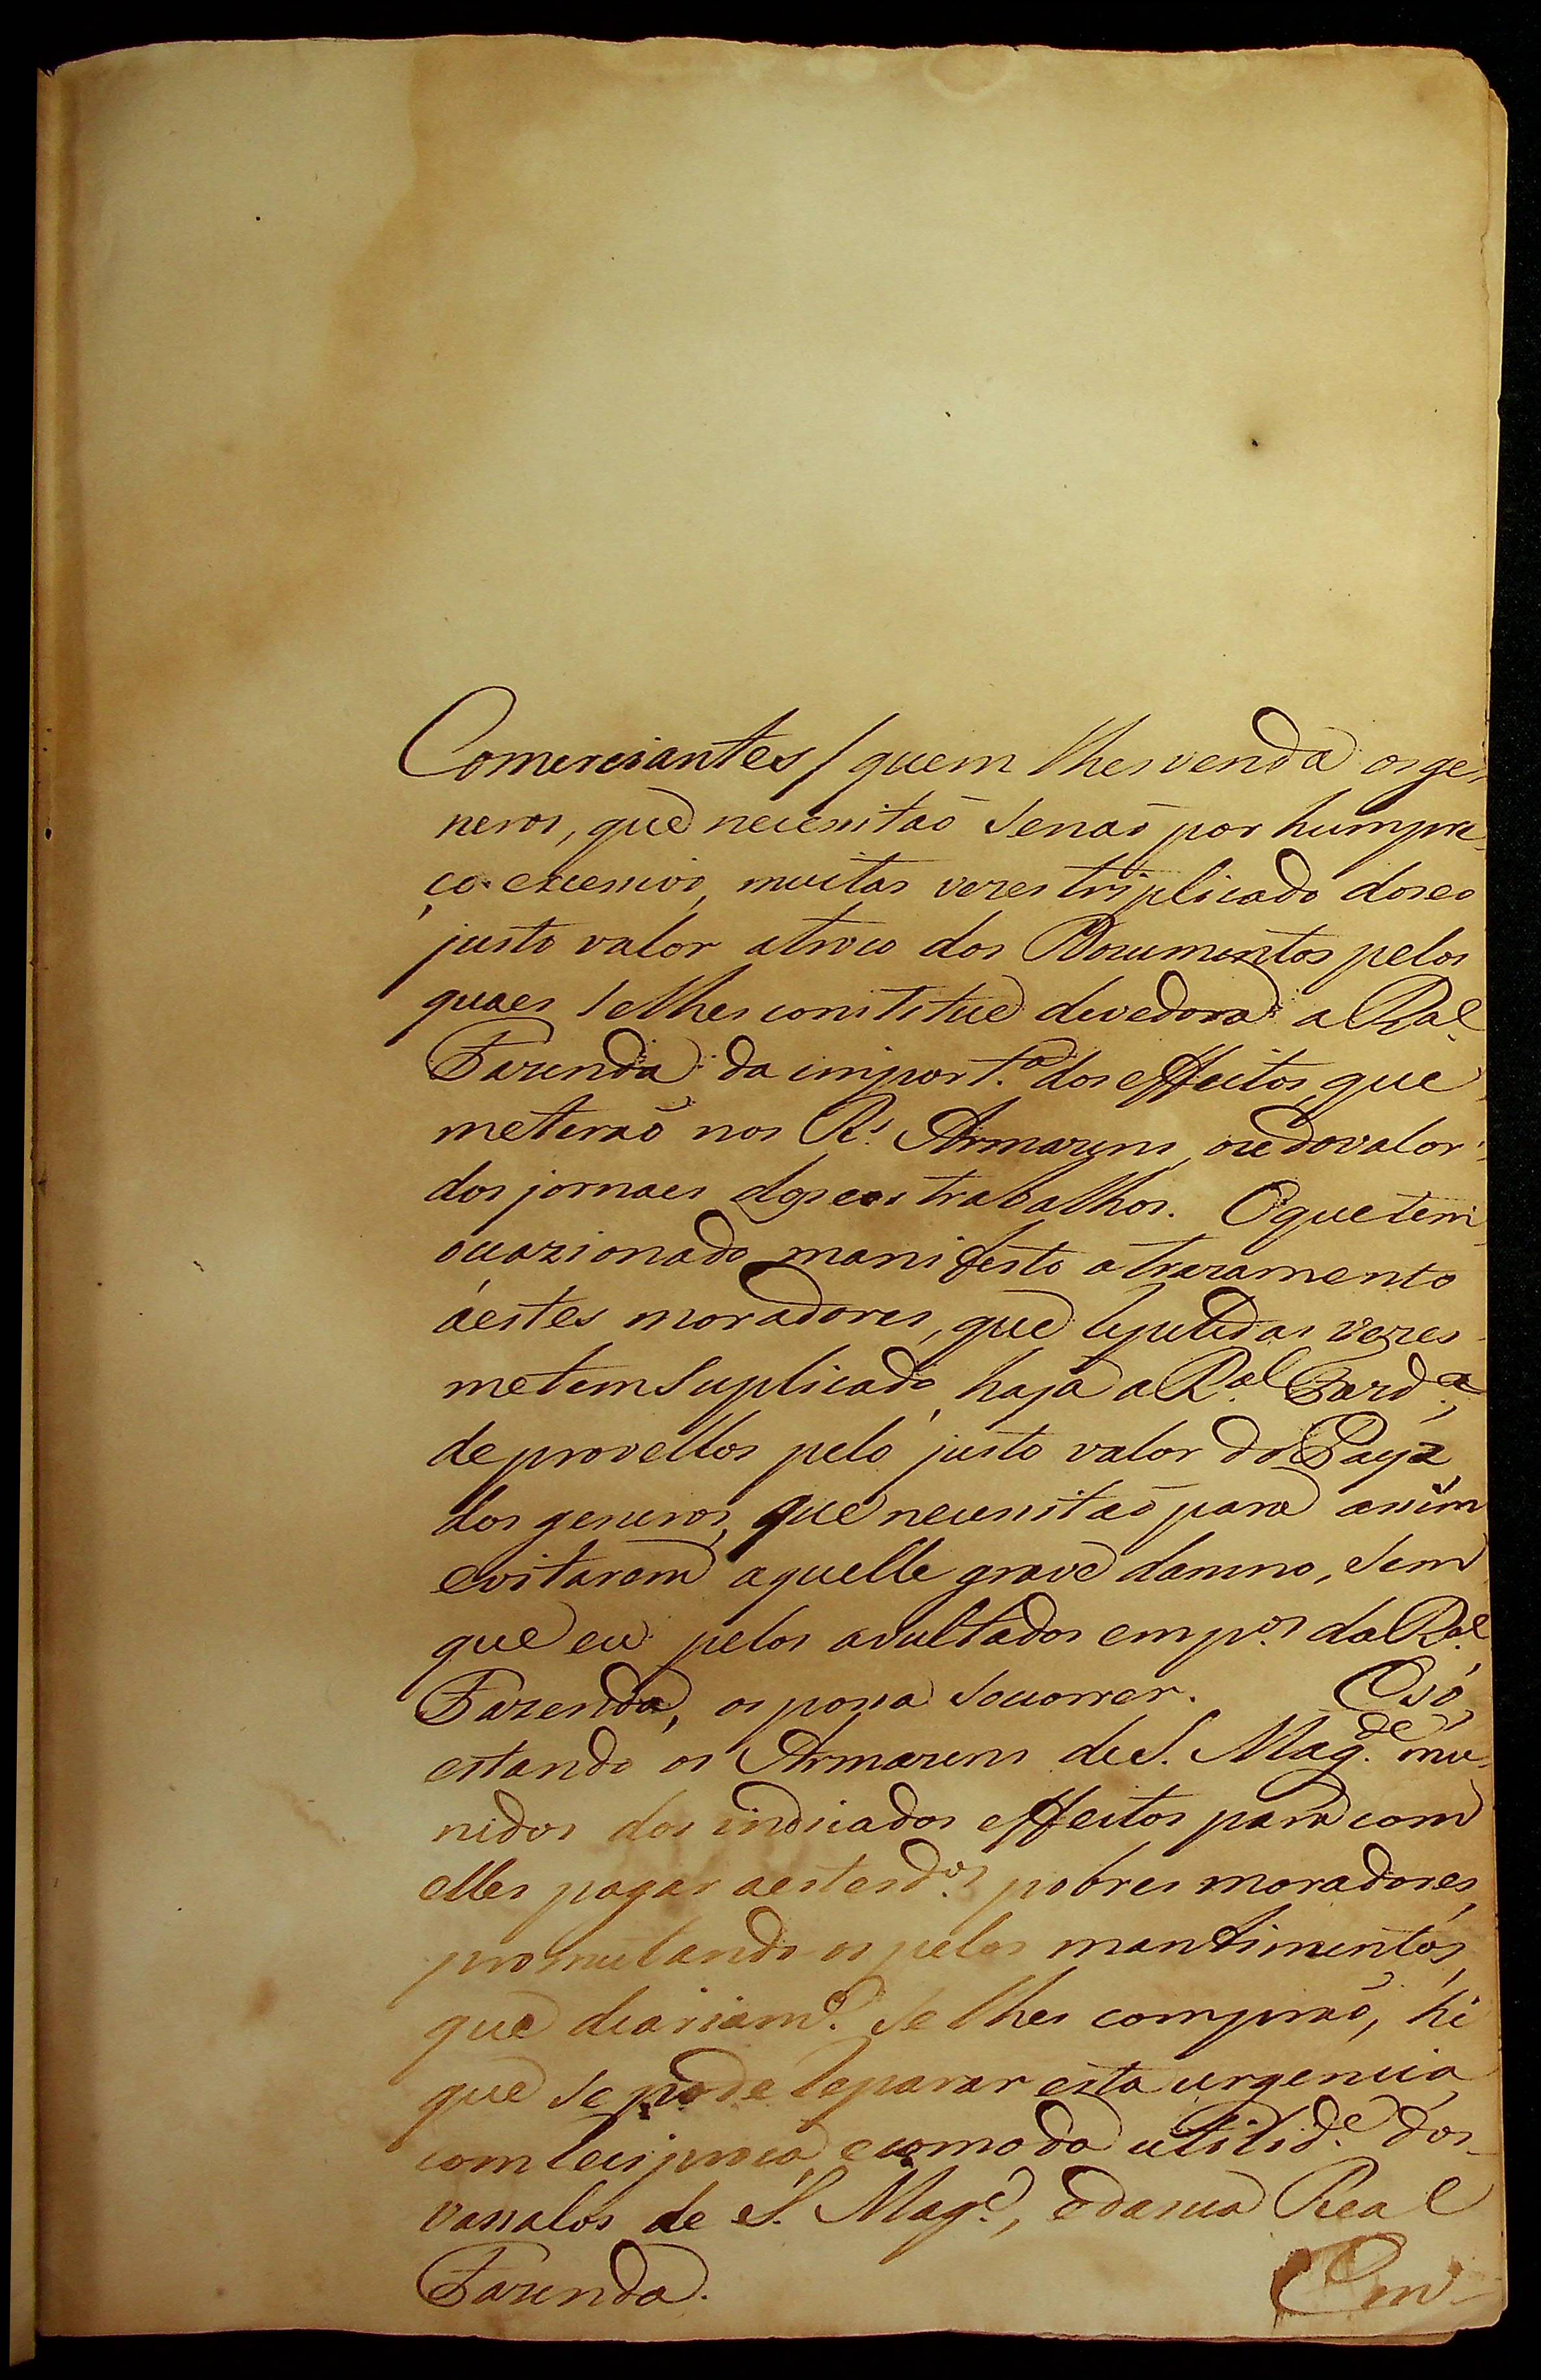 Comerciantes / quem lhes venda os ge-
neros, que necessitaõ senaõ por hum pre-
ço excessivo, muitas vezes triplicado do seo
justo valor a troco dos Documentos pelos
quaes se lhes constitue devedora a R.al
Fazenda da import.a dos effeitos, que
meteraõ nos R.s Armazens, ou do valor
dos jornaes dos seos trabalhos. O que tem
occazionado manifesto atrazamento
áestes moradores, que repetidas vezes
me tem suplicado, haja a R.al Fazd.a,
de provellos pelo justo valor do Payz
dos generos, que necessitaõ para assim
evitarem aquelle grave damno, sem
que eu pelos avultados emp.os da R.al
Fazenda, os possa socorrer. E só
estando os Armazens de S. Mag.de mu-
nidos dos indicados effeitos para com
elles pagar aestes d.os pobres moradores,
promutando os pelos mantimentos,
que diariam.e se lhes compraõ, hé
que se pode reparar esta urgencia
com reciproca, e comoda utilid.e dos
vassalos de S. Mag.e, e da sua Real
Fazenda. Em